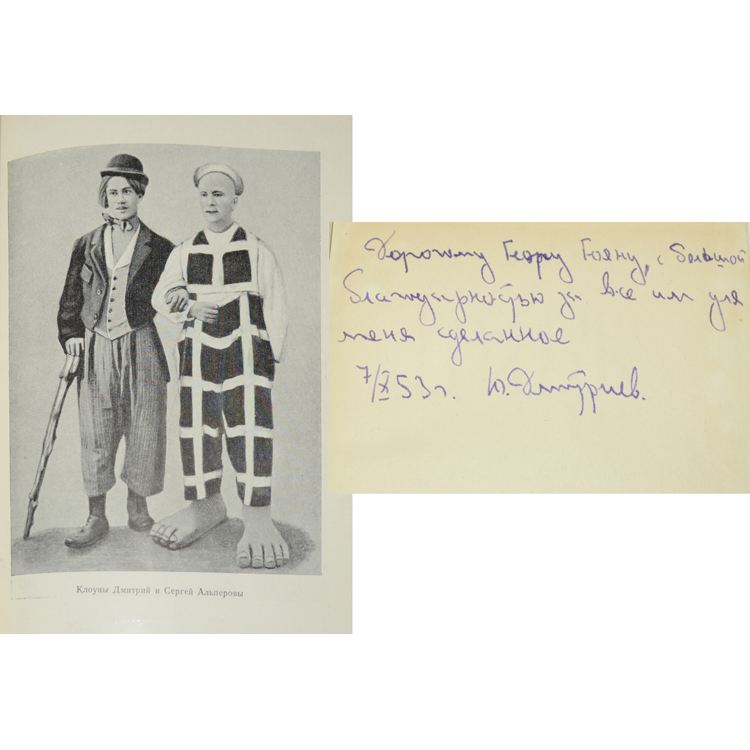 Клоуны Дмитрий и Сергей Альперовы
Хорошему Геору Гояну, с большой
благодарностью за все им для
меня сделанное
7/X 53 г. Ю. Дмитриев.